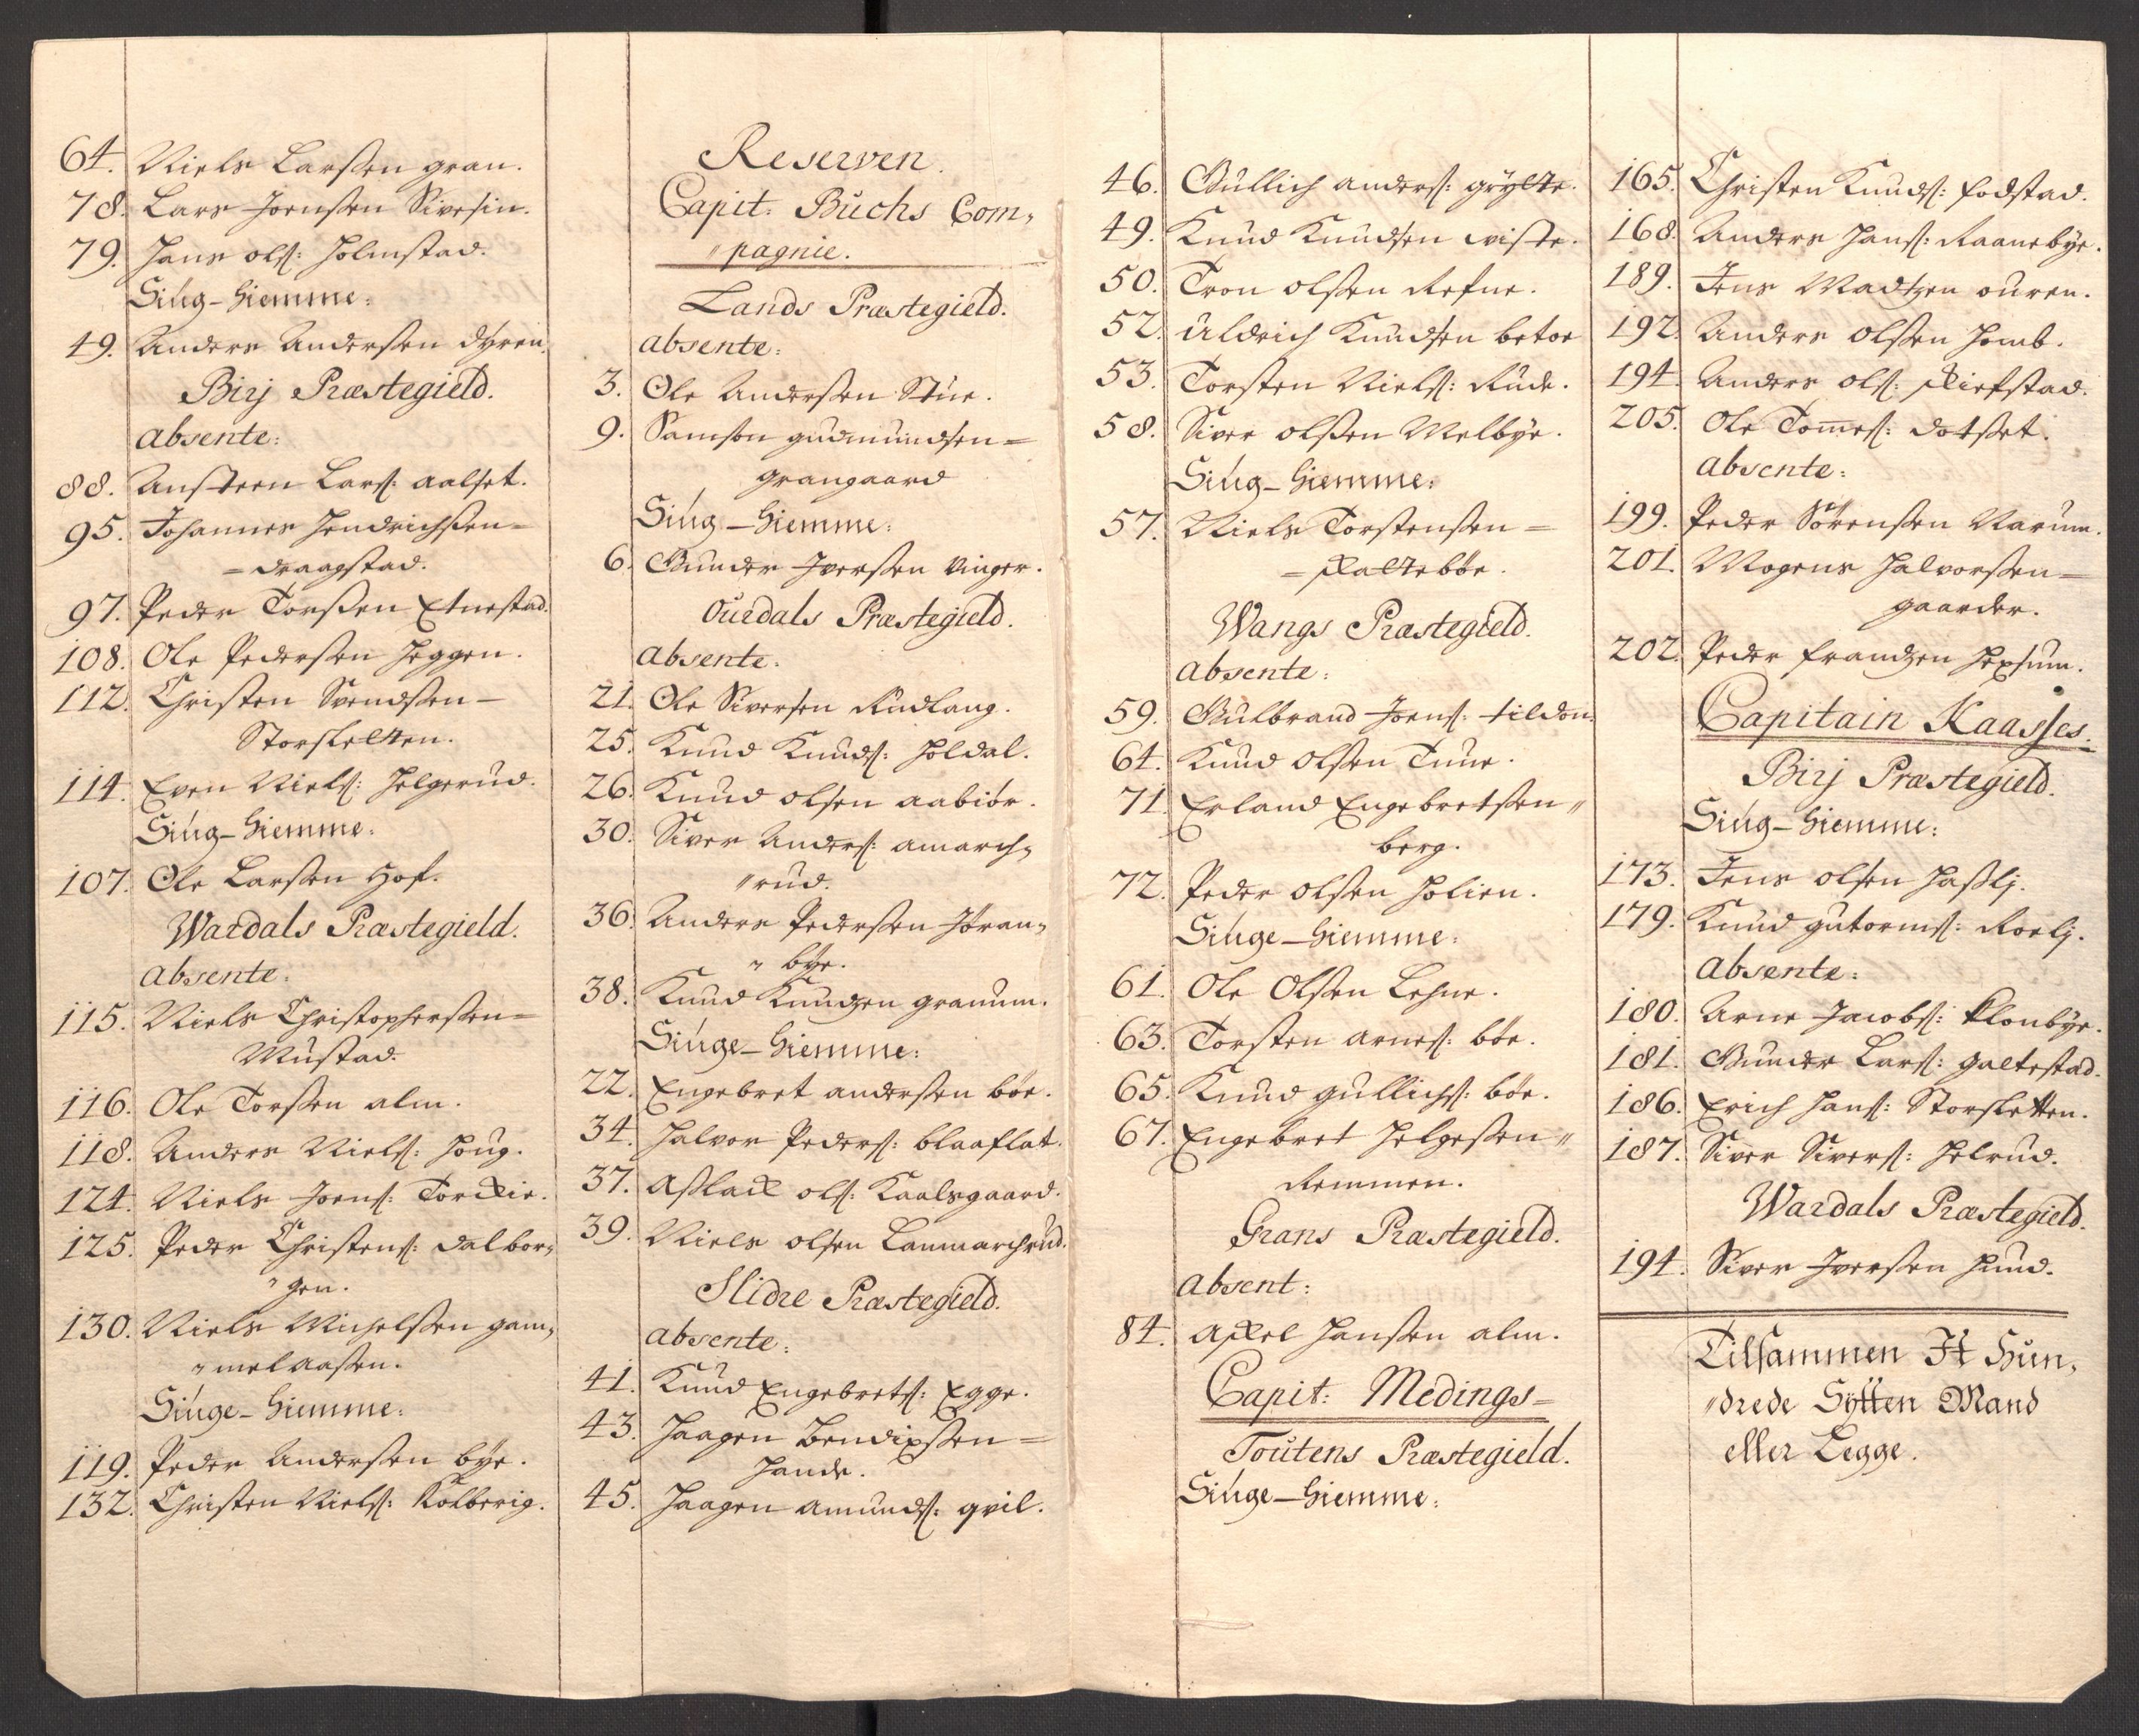 64. Niels Larssen gran.
78. Lars Joenssen Sivesin.
79. Hans ols: Holmstad.
Siúg-hiemme:
49. Anders Anderssen dyren.
Birj Præstegield.
absente:
88. Ansteen Lars: aalset.
95. Johannes Hendrichssen=
=draagstad.
97. Peder Torssen Etnestad.
108. Ole Pederssen Heggen.
112. Christen Svendssen-
Storsletten.
114. Even Niels: Helgerud.
Siúg-hiemme:
107. Ole Larssen Hof.
Wardals Præstegield.
absente:
115. Niels Christopherssen=
Mustad.
116. Ole Torssen alm.
118. Anders Niels: Houg.
124. Niels Joens: Torckie.
125. Peder Christens: dalbor„
„gen.
130. Niels Michelssen gam„
„melaassen.
Siúge-hiemme:
119. Peder Anderssen bye.
132. Christen Niels: Kolberig.
Reserven.
Capit: Buchs Com„
„pagnie.
Lands Præstegield.
absente:
3. Ole Anderssen Stue.
9. Samson gudmundsen=
grangaard
Siúg-hiemme:
6. Gunder Iverssen Vinger.
Ourdals Præstegield.
absente:
21. Ole Siversen Rudlang.
25. Knud Knuds: Holdal.
26. Knud olsen aabiör.
30. Siver Anders: amarch„
„rud.
36. Anders Pederssen Jöran„
„bye.
38. Knud Knudzen granum.
Siúge-hiemme:
22. Engebret anderssen böe.
34. Halvor Peders: blaaflat.
37. Asslack ols: Kaalsgaard.
39. Niels olsen Lanmarchrud.
Slidre Præstegield.
absente:
41. Knud Engebrets: Egge.
43. Haagen Bendixssen=
Hande.
45. Haagen amunds: qvil.
46. Gullich anders: grytte.
49. Knud Knudsen viste.
50. Tron olssen Refne.
52. Uldrich Knudsen betoe
53. Torsten Niels: Rude.
58. Siver olssen Melbye.
Siúg-hiemme:
57. Niels Torstenssen=
=Kalteböe.
Wangs Præstegield.
absente:
59. Gulbrand Joens: tildon.
64. Knud olssen Tune.
71. Erland Engebretssen„
berg.
72. Peder olssen Holien.
Siúge-hiemme:
61. Ole Olssen Lehne.
63. Torsten arnes: böe.
65. Knud gullichs: böe.
67. Engebret Helgessen„
Remmen.
Grans Præstegield.
absent:
84. Axel Hanssen alm.
Capit: Medings=
Toutens Præstegield.
Siúge-hiemme:
165. Christen Knuds: fodstad.
168. Anders Hans: Raanebye.
189. Jens Madtzen ouren.
192. Anders Olssen Homb.
194. Anders ols: Kiefstad.
205. Ole Tommes: dotset.
absente:
199. Peder Sörenssen Narum.
201. Mogens Halvorssen=
gaarder.
202. Peder frandzen Hexum.
Capitain Kaasses.
Birj Præstegield.
Siúg-hiemme:
173. Jens olsen Hasslj.
179. Knud gutorms: Roelj.
absente:
180. Arne Jacobs: Klonbye.
181. Gunder Lars: galtestad.
186. Erich Hans: Storsletten.
187. Siver Sivers: Helrud.
Wardals Præstegield.
194. Siver Iverssen Hund.
Tilsammen It Hun„
„drede Sytten Mand
eller Legge.